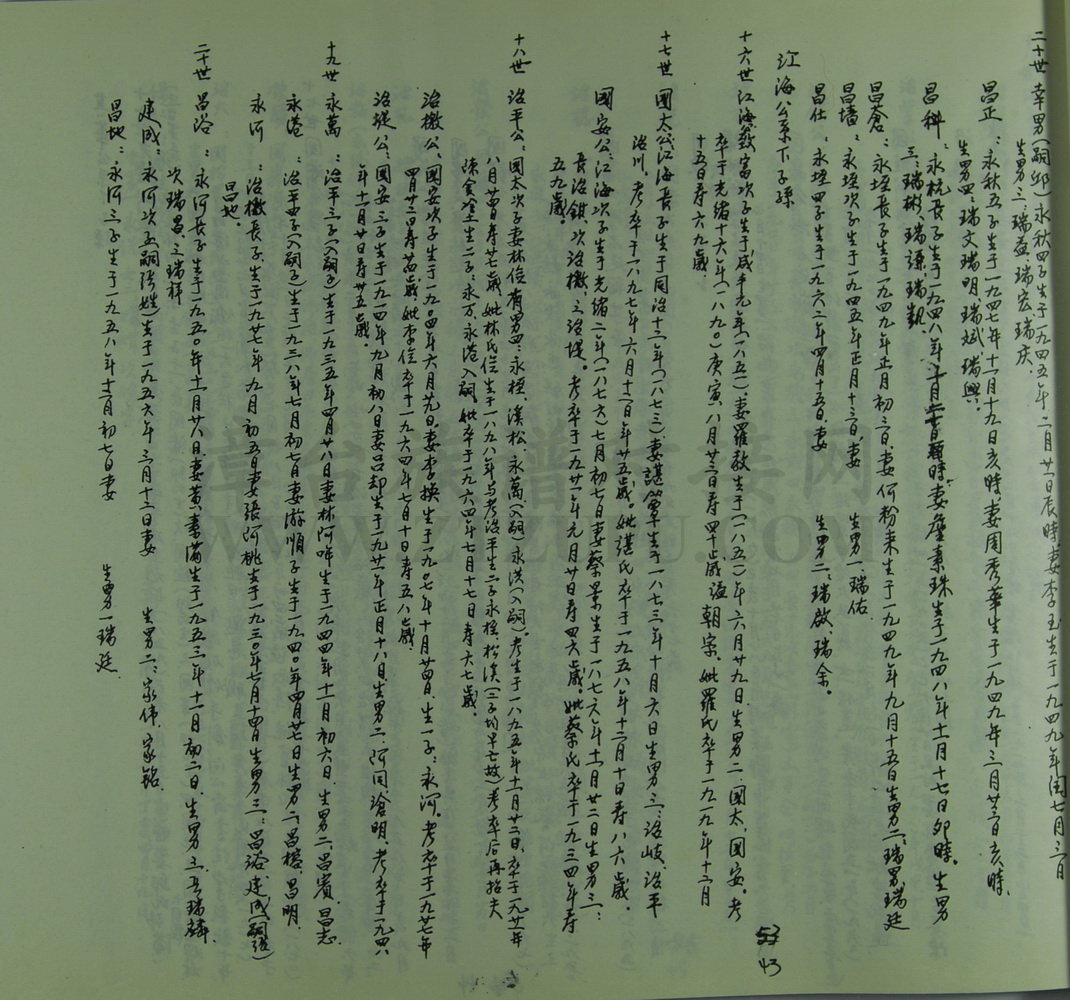 二十世 幸男(嗣邱)永秋四子生于一九四五年二月廿一日辰時妻李玉生于一九四九年閏七月三日
生男三:瑞益、瑞宏、瑞庆
昌正:永秋五子生于一九四七年十一月十九日亥時妻周秀華生于一九四九年三月廿三日亥時
生男四:瑞文、瑞明、瑞斌、瑞興
昌科:永桄長子生于一九四八年 時妻 素珠生于一九四八年十一月十七日卯時。生男
三:瑞彬、瑞謙、瑞凱
昌倉:永垤長子生于一九四九年正月初三日妻何粉来生于一九四九年九月十五日生男二:瑞男、瑞廷
昌墻:永垤次子生于一九四五年正月十三日妻 生男一瑞佑
昌仕:永垤四子生于一九六二年四月十五日妻 生男二:瑞啟、瑞余。
江海公系下子孫
十六世江海敦富次子生于咸丰元年(一八五一)妻羅敦生于(一八五一)年六月廿九日生男二國太、國安。考
卒于光緒十六年(一八九〇)庚寅八月廿三日寿四十歲謚朝宗。妣羅氏卒于一九一九年十二月
十五日寿六九歲
十七世 國太公江海長子生于同治十二年(一八七三)妻諶 生于一八七三年十月六日生男三:治岐、治平
治川。考卒于一八九七年六月十二日年廿五歲。妣諶氏卒于一九五八年十二月十日寿八六歲。
國安公:江海次子生于光緒二年(一八七六)七月初七日妻蔡景生于一八七六年十一月廿二日生男三:
長治鎮、次治檄、三治堤。考卒于一九二一年元月廿日寿四六歲。妣蔡氏卒于一九三四年寿
五九歲。
十八世 治平公:國太次子妻林俭育男四:永極、漢松、永萬(入嗣)永洪(入嗣)考生于一八九五年十一月廿二日卒于一九二一年
八月廿四日寿廿七歲妣林氏俭生于一八九八年与考治平生二子永極、松漢(二子均早亡故)考卒后再招夫
陳 生二子:永万、永港入嗣妣卒于一九六四年七月十七日寿六七歲。
治檄公:國安次子生于一九〇四年六月廿九日妻李换生于一九〇七年十月廿四日生一子:永河。考卒于一九二七年
四月廿二日寿廿四歲妣李位卒于一九六四年七月十日寿五八歲
治堤公:國安三子生于一九一四年九月初八日妻吕却生于一九二一年正月十八日生男二、阿同滄明。考卒于一九四八
年十一月廿日寿卅五歲。
十九世 永萬:治平三子(入嗣子)生于一九三五年四月廿八日妻林阿 生于一九四四年十一月初六日生男二、昌賓、昌志
永港:治平四子(入嗣子)生于一九三八年七月初七日妻游順子生于一九四〇年四月廿七日生男二、昌榕、昌明
永河:治檄長子生于一九二七年九月初五日妻張阿桃生于一九三〇年七月十四日生男三:昌浴、建成(嗣張)
昌地。
二十世 昌浴:永河長子生于一九五〇年十一月廿八日妻黄素滿生于一九五三年十一月初二日生男三、長瑞麟、
次瑞昌、三瑞祥
建成:永河次子(嗣張姓)生于一九五六年三月十三日妻 生男二:家偉、家銘
昌地:永河三子生于一九五八年十二月初七日妻 生男一瑞廷
53
43